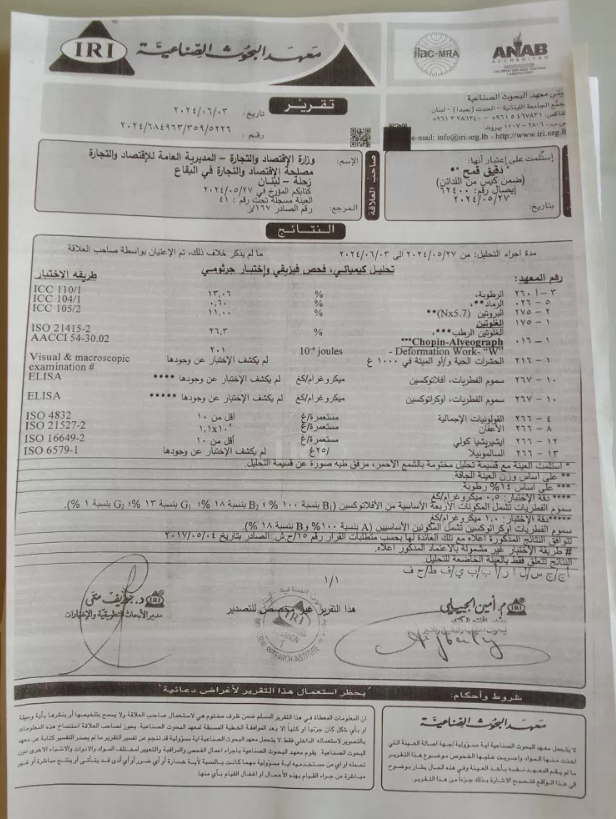 IRI
معهد البحوث الصناعية
ilac-MRA
ANAB
ACCREDITED
مبنى معهد البحوث الصناعية
مجمّع الجامعة اللبنانية - الحدث (بعبدا) - لبنان
e-mail: info@iri.org.lb - http://www.iri.org.lb
تقرير
تاريخ: ٢٠٢٤/٠٦/٠٣
رقم: ٢٠٢٤/٦٨٤٩٦٣/٣٥٩/٥٢٢٦
صاحب العلاقة
الإسم: وزارة الإقتصاد والتجارة - المديرية العامة للإقتصاد والتجارة
مصلحة الإقتصاد والتجارة في البقاع
زحلة - لبنان
المرجع: كتابكم المؤرخ في ٢٠٢٤/٠٥/٢٧
العينة مسجلة تحت رقم: ٤١
رقم الصادر ١٦٧/ز
إستلمت على إعتبار أنها:
"دقيق قمح"*
إيصال رقم: ٦٢٤٠٠
بتاريخ: ٢٠٢٤/٠٥/٢٧
النتائج
مدة اجراء التحليل: من ٢٠٢٤/٠٥/٢٧ الى ٢٠٢٤/٠٦/٠٣
ما لم يذكر خلاف ذلك، تم الإعتيان بواسطة صاحب العلاقة
تحليل كيميائي، فحص فيزيقي وإختبار جرثومي
رقم المعهد:
طريقة الإختبار
٣ - أ ٢٦٠ الرطوبة، % ١٣,٠٦ ICC 110/1
٥ - ٠٢٦ الرماد**، % ٠,٦٠ ICC 104/1
٢ - ٢٧٥ البروتين (Nx5.7)** % ١١,٠٠ ICC 105/2
١ - ١٧٥ الغلوتين
الغلوتين الرطب***، % ٢٦,٣ ISO 21415-2
١ - ٠١٦ Chopin-Alveograph*** AACCI 54-30.02
- Deformation Work- "W" 10⁻⁴ joules ٢٠١
١ - ٢١٦ الحشرات الحية و/أو الميتة في ١٠٠٠ غ لم يكشف الإختبار عن وجودها Visual & macroscopic examination #
١٠ - ٢٦٧ سموم الفطريات، أفلاتوكسين ميكروغرام/كغ لم يكشف الإختبار عن وجودها **** ELISA
١٠ - ٢٦٧ سموم الفطريات، أوكراتوكسين ميكروغرام/كغ لم يكشف الإختبار عن وجودها ***** ELISA
٤ - ٢٦٦ القولونيات الإجمالية مستعمرة/غ أقل من ١٠ ISO 4832
٨ - ٢٦٦ الأعفان مستعمرة/غ ISO 21527-2
١٢ - ٢٦٦ إيشيريشيا كولي مستعمرة/غ أقل من ١٠ ISO 16649-2
١٣ - ٢٦٦ السالمونيلا /٢٥غ لم يكشف الإختبار عن وجودها ISO 6579-1
* استلمت العينة مع قسيمة تحليل مختومة بالشمع الأحمر، مرفق طيه صورة عن قسيمة التحليل.
** على أساس وزن العينة الجافة
*** على أساس ١٤% رطوبة.
**** دقة الإختبار: ٠,٥ ميكروغرام/كغ
سموم الفطريات تشمل المكونات الأربعة الأساسية من الأفلاتوكسين (B₁ بنسبة ١٠٠ % ؛ B₂ بنسبة ١٨ %؛ G₁ بنسبة ١٣ %؛ G₂ بنسبة ١ %).
*****دقة الإختبار: ١,٠ ميكروغرام/كغ
تتوافق النتائج المذكورة أعلاه مع تلك العائدة لها بحسب متطلبات القرار رقم ١٥/ح ش. الصادر بتاريخ ٢٠١٧/٠٥/٠٤
# طريقة الإختبار غير مشمولة بالاعتماد المذكور أعلاه.
النتائج تتعلق فقط بالعينة الخاضعة للتحليل
١/١
هذا التقرير غير مخصص للتصدير
م. أمين الجبيلي
د. جوزيف متى
مدير الأبحاث التطبيقية والإختبارات
"يحظر استعمال هذا التقرير لأغراض دعائية"
شروط وأحكام:
معهد البحوث الصناعية